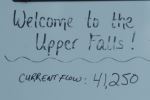 Welcome to the
Upper Falls!
CURRENT FLOW: 41,250